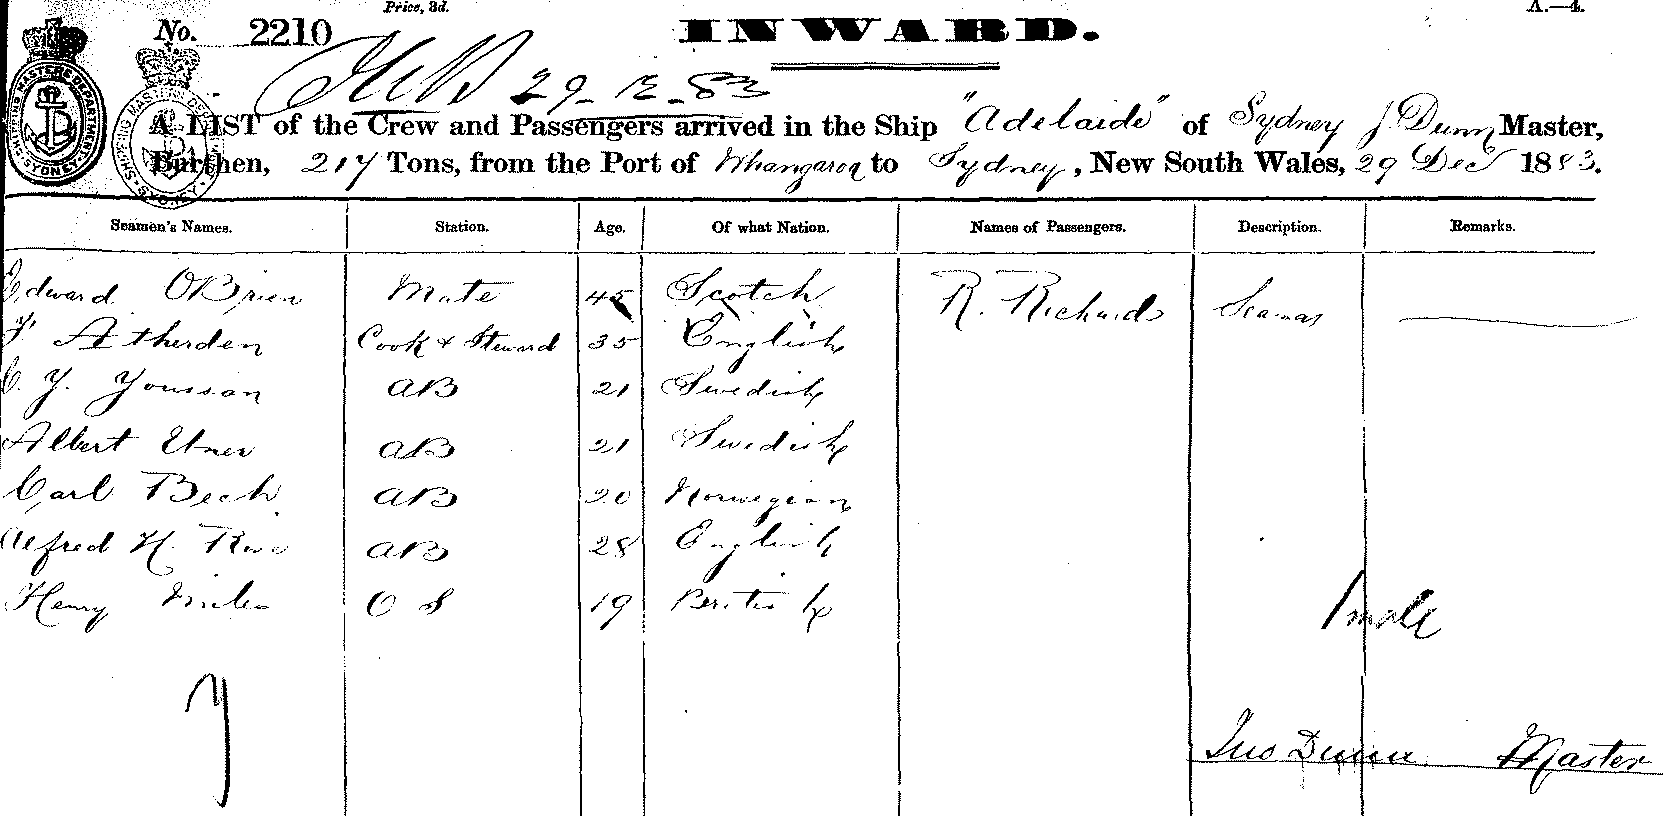 Price, 3d.
A.—4.
No. 2210
INWARD.
29-12-83
A LIST of the Crew and Passengers arrived in the Ship "Adelaide" of Sydney J. Dunn Master,
Burthen, 217 Tons, from the Port of Whangaroa to Sydney, New South Wales, 29 Dec 1883.
Seamen's Names. Station. Age. Of what Nation. Names of Passengers. Description. Remarks.
Edward OBrien Mate 45 Scotch R. Richards Seaman
Atherden Cook & Steward 35 English
C. Y. Youssan AB 21 Swedish
Albert AB 21 Swedish
Carl Bech AB 20 Norwegian
Alfred H. AB 28 English
Henry O S 19 British
1 male
7
Jno Dunn Master